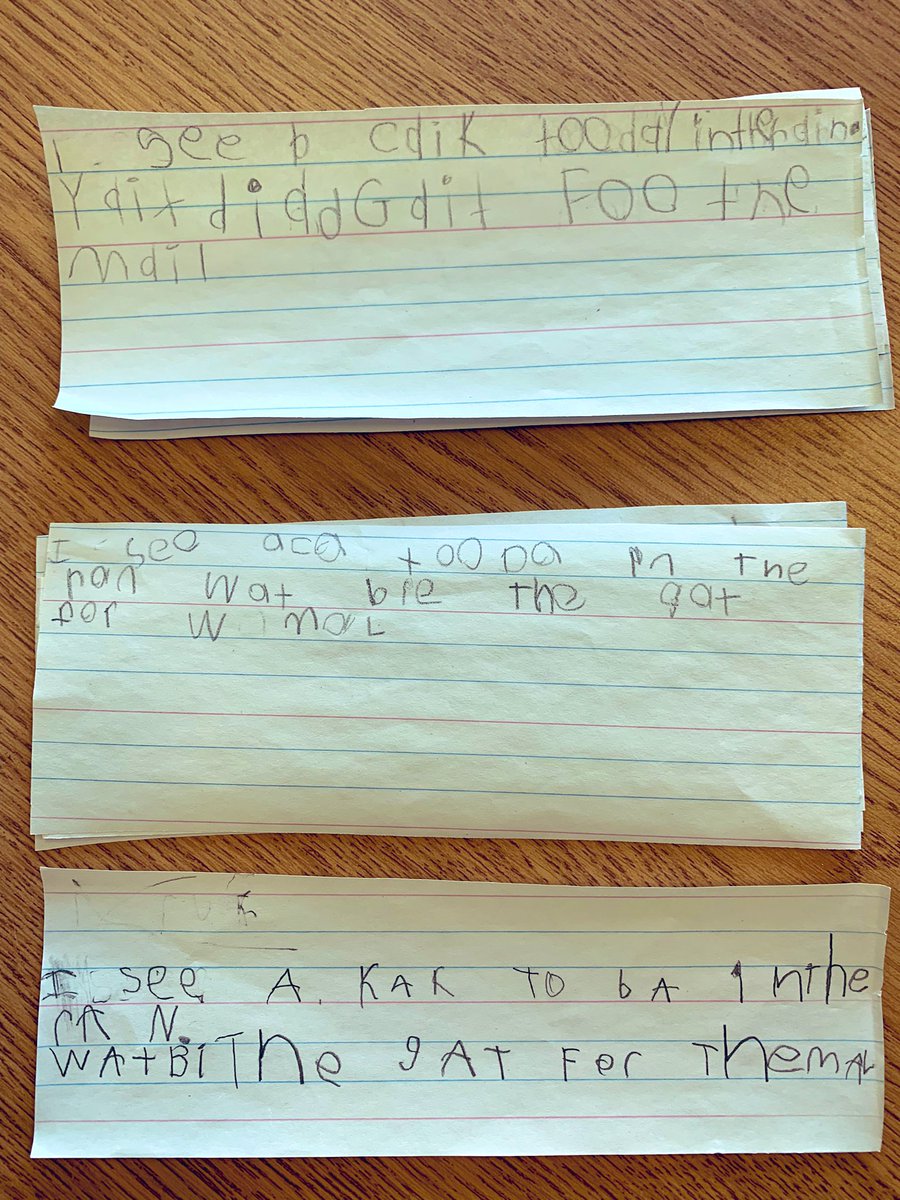 I see b cdik tOOdd/ intheding
Ydit didd Gdit FOO the
Mdil
I see aca tooDa in the
ran Wat bie the gat
for W mal
K
I see A. KAK TO bA InThe
rA N.
WAtBiThe gAT For TheMAL